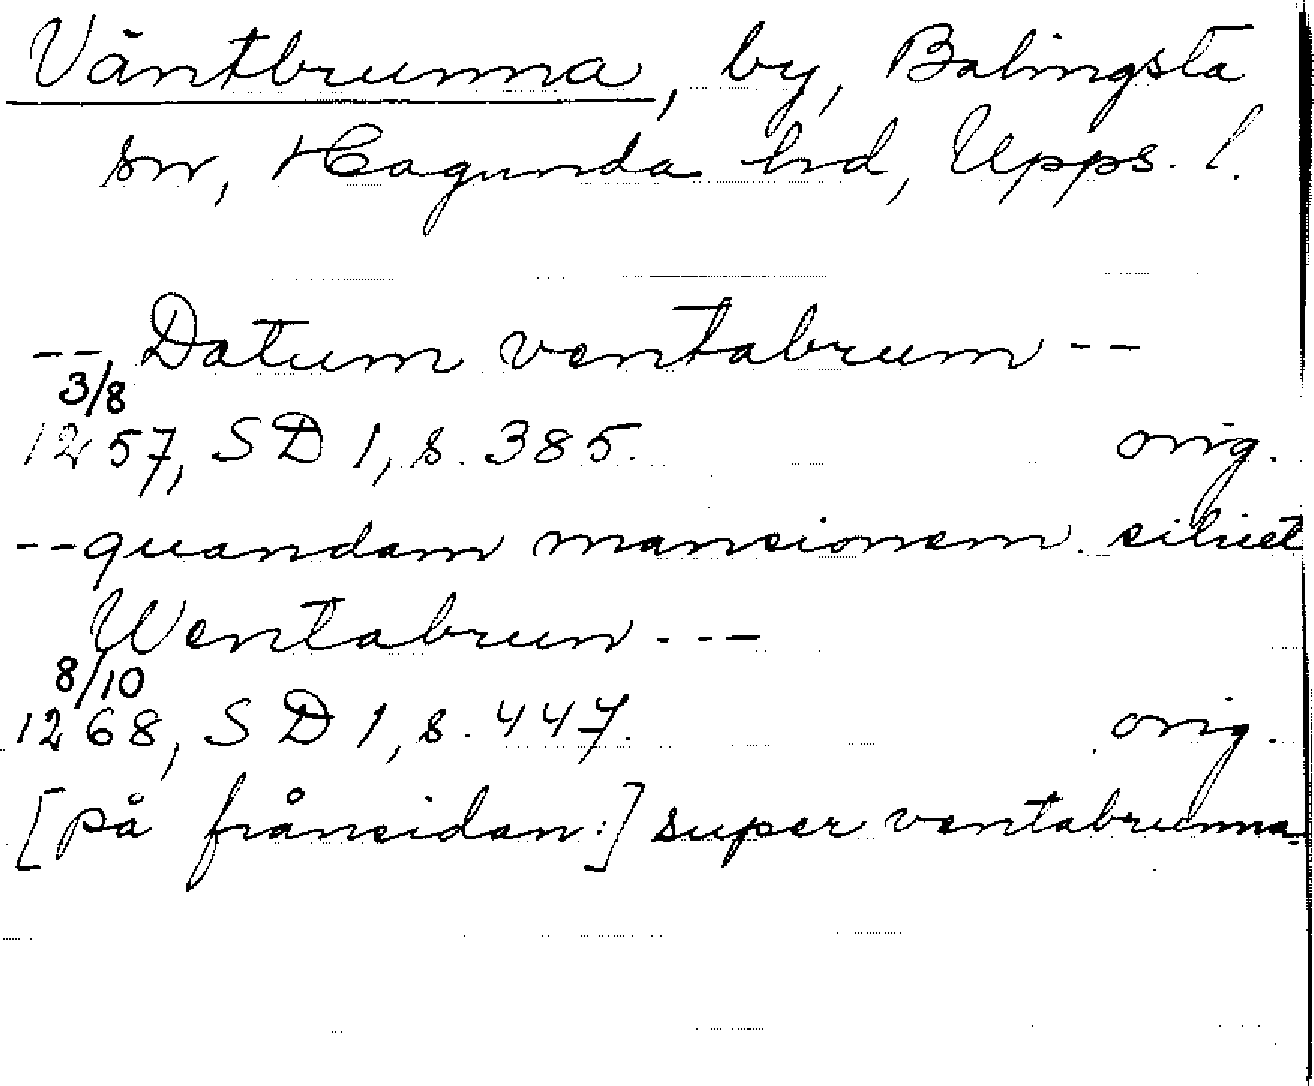 Väntbrunna, by, Balingsta
sn, Hagunda hd, Upps. l.
-- Datum ventabrum --
3/8
1257, SD 1, s. 385. orig.
-- quandam mansionem
Wentabrun ---
8/10
1268, SD 1, s. 447. orig.
[på frånsidan:] super ventabrunna